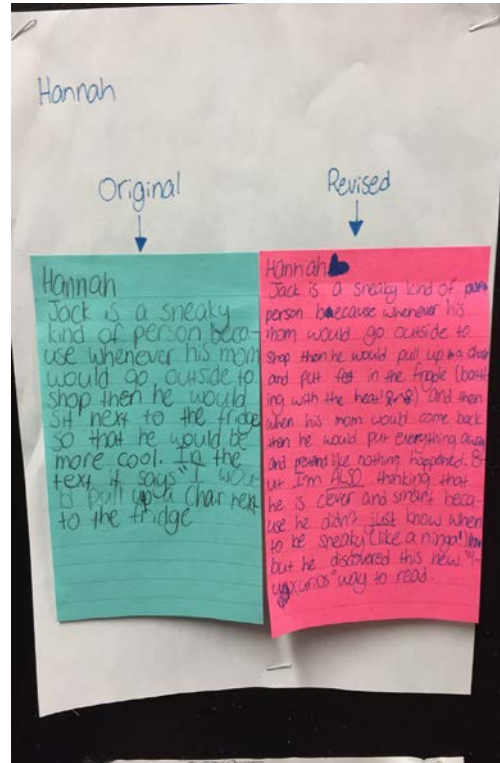 Hannah
Original
Revised
Hannah
Jack is a sneaky
kind of person beca-
use whenever his mom
would go outside to
shop then he would
sit next to the fridge
so that he would be
more cool. In the
text it says "I
pull up a chair next
to the fridge
Hannah
Jack is a sneaky kind of
person because whenever his
mom would go outside to
shop then he would pull up a chair
and put in the fridge (battl-
ing with the heat!) and then
when his mom would come back
then he would put everything away
and pretend like nothing happened. B-
ut I'm ALSO thinking that
he is clever and smart beca-
use he didn't just know when
to be sneaky (like a ninga!)
but he discovered this new
way to read.